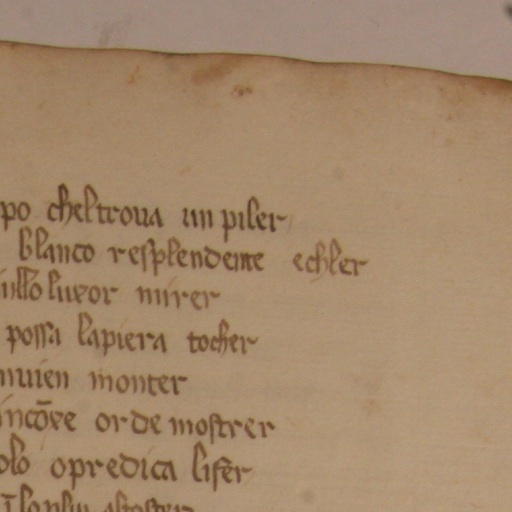 po cheltroua un piler
blanco resplendente echler
luxor mirer
possa lapiera tocher
nuien monter
incōue or de mostrer
olo opredica lifer